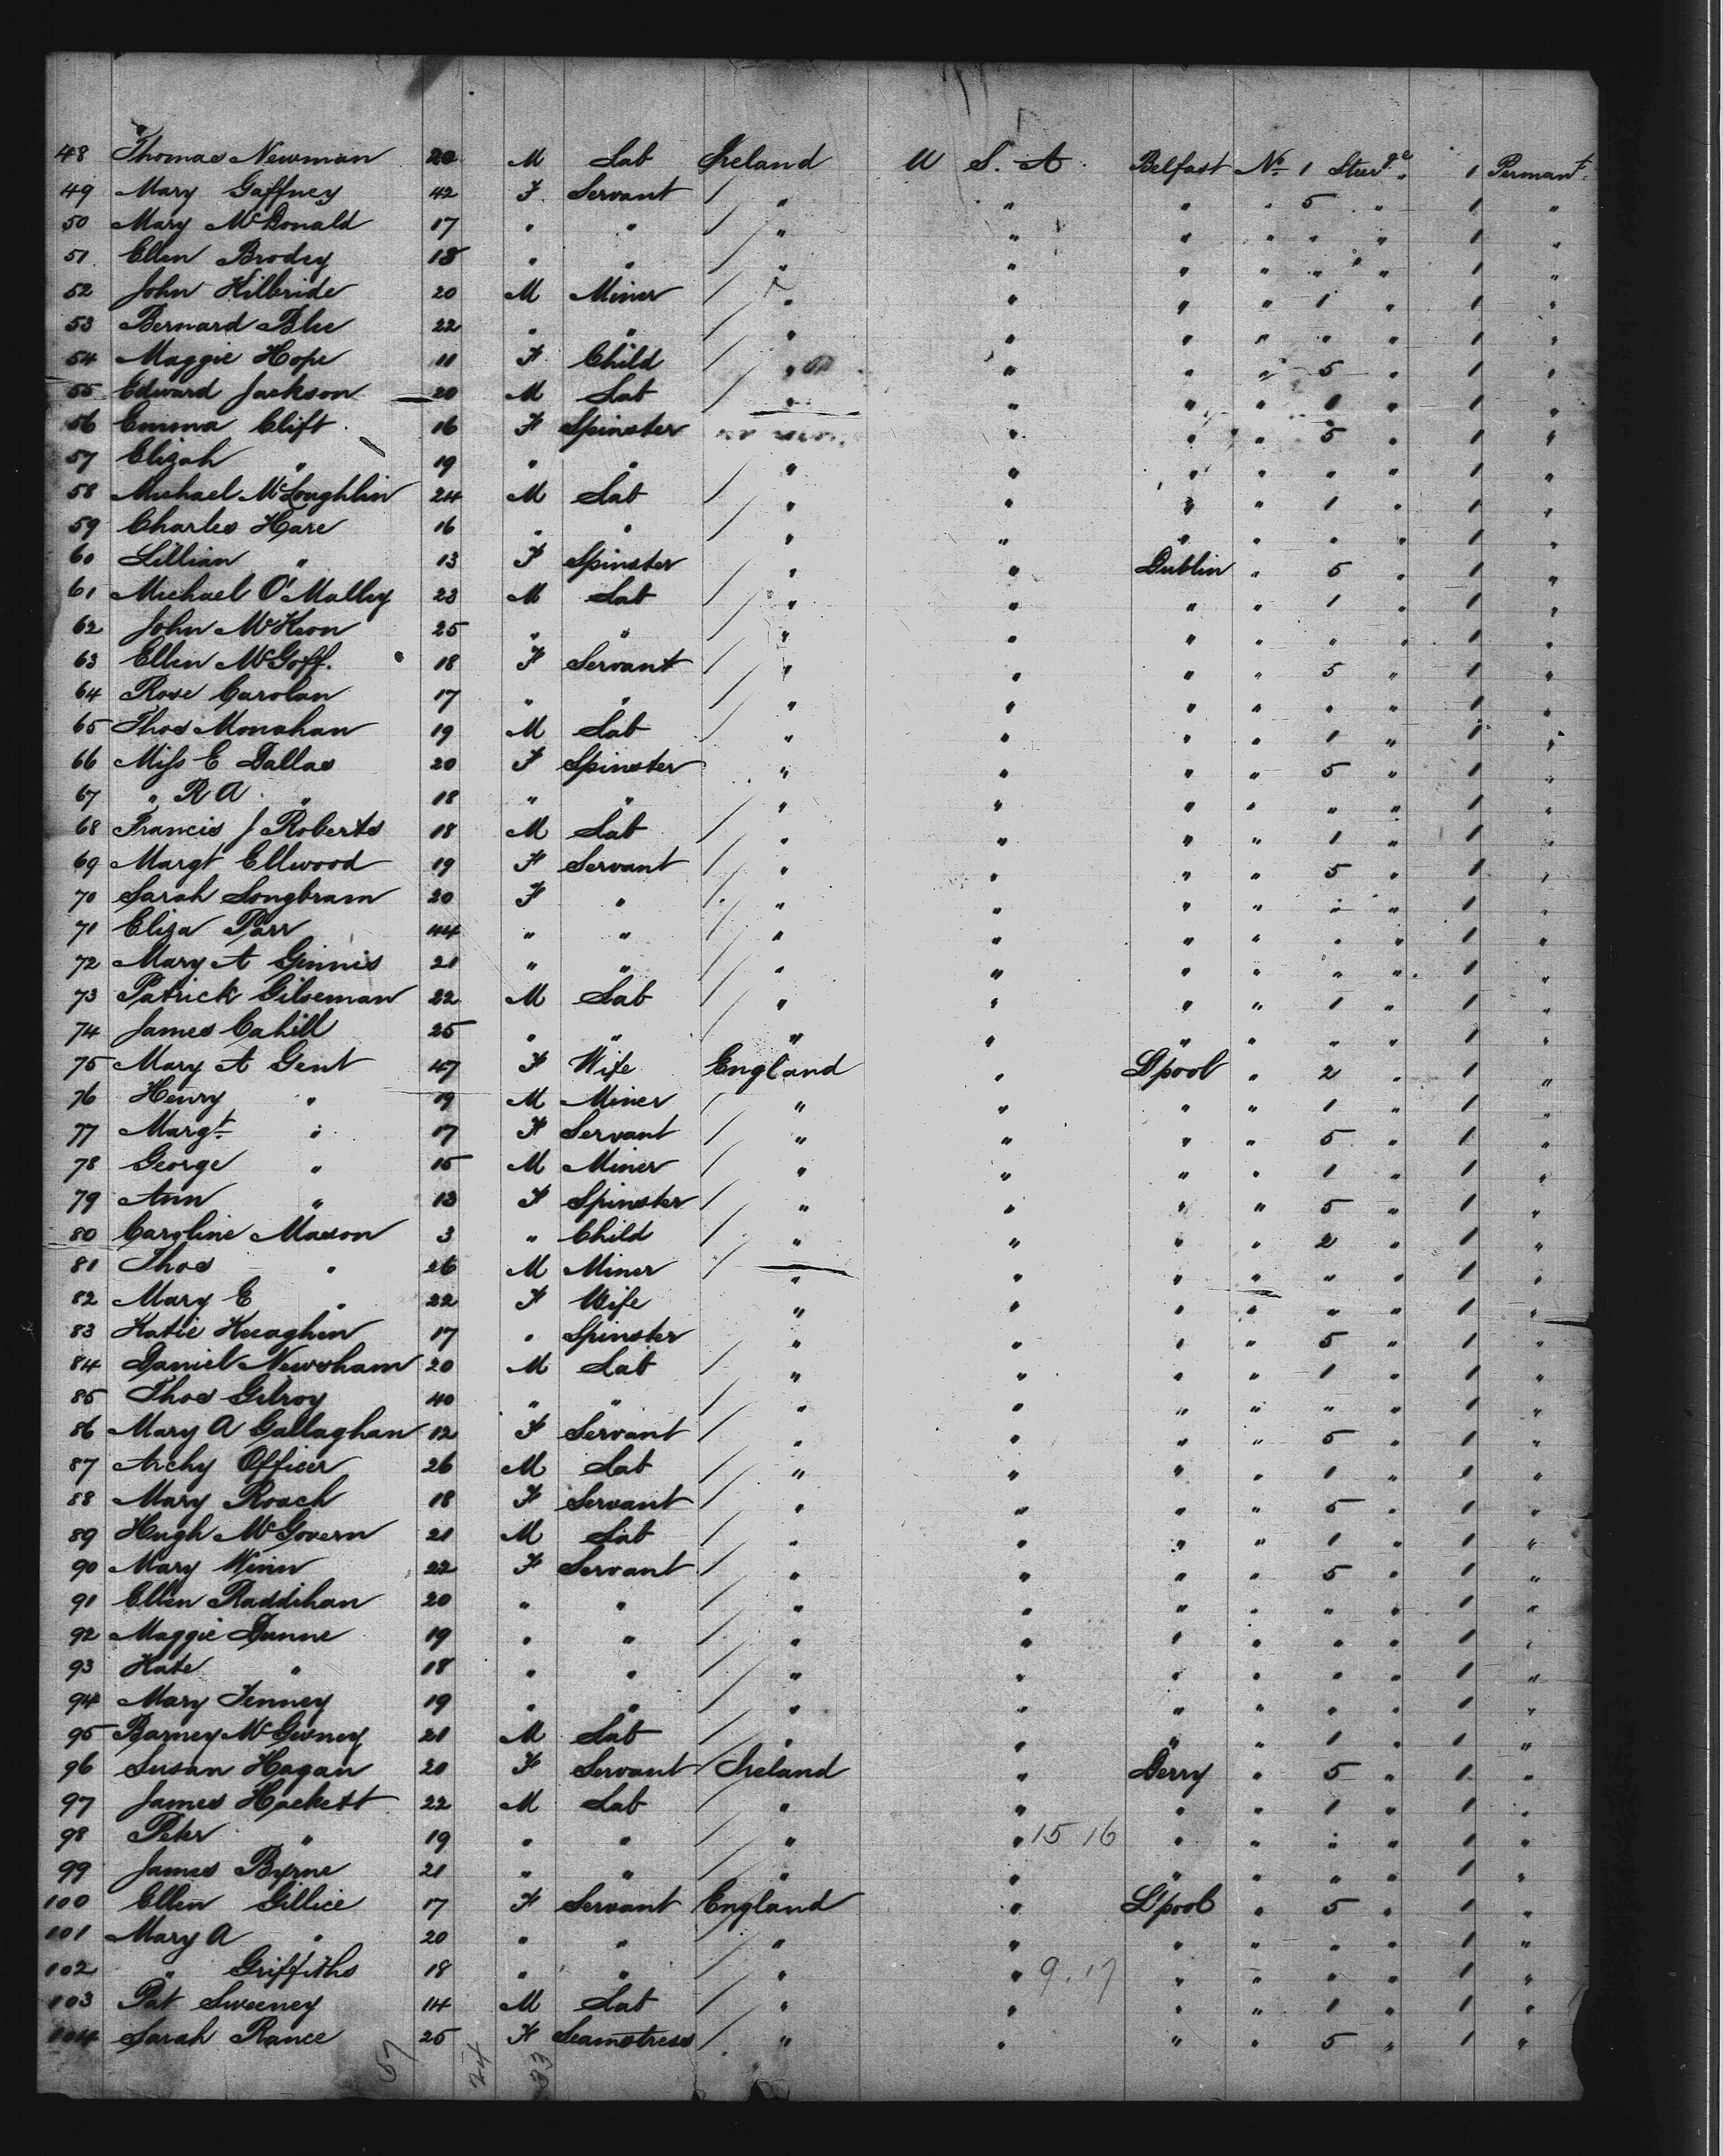 48 Thomas Newman 20 M Lab Ireland U S. A. Belfast No 1 Steerge 1 Permant.
49 Mary Gaffney 42 F. Servant / " " " " 5 " 1 "
50 Mary McDonald 17 " " / " " " " " " 1 "
51 Ellen Brodey 18 " " / " " " " " " 1 "
52 John Kilbride 20 M Miner / " " " " 1 " 1 "
53 Bernard Blee 22 " " / " " " " " " 1 "
54 Maggie Hope 11 F. Child / " " " " 5 " 1 "
55 Edward Jackson 20 M Lab / " " " " 1 " 1 "
56 Emma Clift 16 F Spinster " " " 5 " 1 "
57 Elizah " 19 " " / " " " " " " 1 "
58 Michael McLoughlin 24 M Lab / " " " " 1 " 1 "
59 Charles Hare 16 " " / " " " " " " 1 "
60 Lillian " 13 F Spinster / " " Dublin " 5 " 1 "
61 Michael O'Malley 23 M Lab / " " " " 1 " 1 "
62 John McKeon 25 " " / " " " " " " 1 "
63 Ellen McGoff. 18 F Servant / " " " " 5 " 1 "
64 Rose Carolan 17 " " / " " " " " " 1 "
65 Thos Monahan 19 M Lab / " " " " 1 " 1 "
66 Miss E Dallas 20 F Spinster " " " " 5 " 1 "
67 " R A " 18 " " / " " " " " " 1 "
68 Francis J Roberts 18 M Lab / " " " " 1 " 1 "
69 Margt Ellwood 19 F Servant / " " " " 5 " 1 "
70 Sarah Longbram 20 F " / " " " " " " 1 "
71 Eliza Parr 44 " " / " " " " " " 1 "
72 Mary A Ginnis 21 " " / " " " " " " 1 "
73 Patrick Gilseman 22 M Lab / " " " " 1 " 1 "
74 James Cahill 25 " " / " " " " " " 1 "
75 Mary A Gent 47 F Wife England " L'pool " 2 " 1 "
76 Henry " 19 M Miner / " " " " 1 " 1 "
77 Margt. " 17 F Servant / " " " " 5 " 1 "
78 George " 15 M Miner / " " " " 1 " 1 "
79 Ann " 13 F Spinster / " " " " 5 " 1 "
80 Caroline Maxon 3 " Child / " " " " 2 " 1 "
81 Thos " 26 M Miner / " " " " " " 1 "
82 Mary E " 22 F Wife " " " " " " 1 "
83 Katie Keeaghen 17 " Spinster " " " " 5 " 1 "
84 Daniel Newsham 20 M Lab / " " " " 1 " 1 "
85 Thos Gilroy 40 " " / " " " " " " 1 "
86 Mary A Gallaghan 12 F Servant / " " " " 5 " 1 "
87 Archy Officer 26 M Lab / " " " " 1 " 1 "
88 Mary Roach 18 F Servant / " " " " 5 " 1 "
89 Hugh McGovern 21 M Lab / " " " " 1 " 1 "
90 Mary Winn 22 F Servant / " " " " 5 " 1 "
91 Ellen Raddihan 20 " " / " " " " " " 1 "
92 Maggie Dunne 19 " " / " " " " " " 1 "
93 Kate " 18 " " / " " " " " " 1 "
94 Mary Tenney 19 " " / " " " " " " 1 "
95 Barney McGivney 21 M Lab / " " " " 1 " 1 "
96 Susan Hagan 20 F Servant Ireland " Derry " 5 " 1 "
97 James Hackett 22 M Lab / " " " " 1 " 1 "
98 Peter " 19 " " / " " 15 16 " " " " 1 "
99 James Byrne 21 " " / " " " " " " 1 "
100 Ellen Gillice 17 F Servant England " L'pool " 5 " 1 "
101 Mary A " 20 " " / " " " " " " 1 "
102 " Griffiths 18 " " / " " 9.17 " " " " 1 "
103 Pat Sweeney 14 M Lab / " " " " 1 " 1 "
104 Sarah Rance 25 F Seamstress / " " " " 5 " 1 "
57 24 33